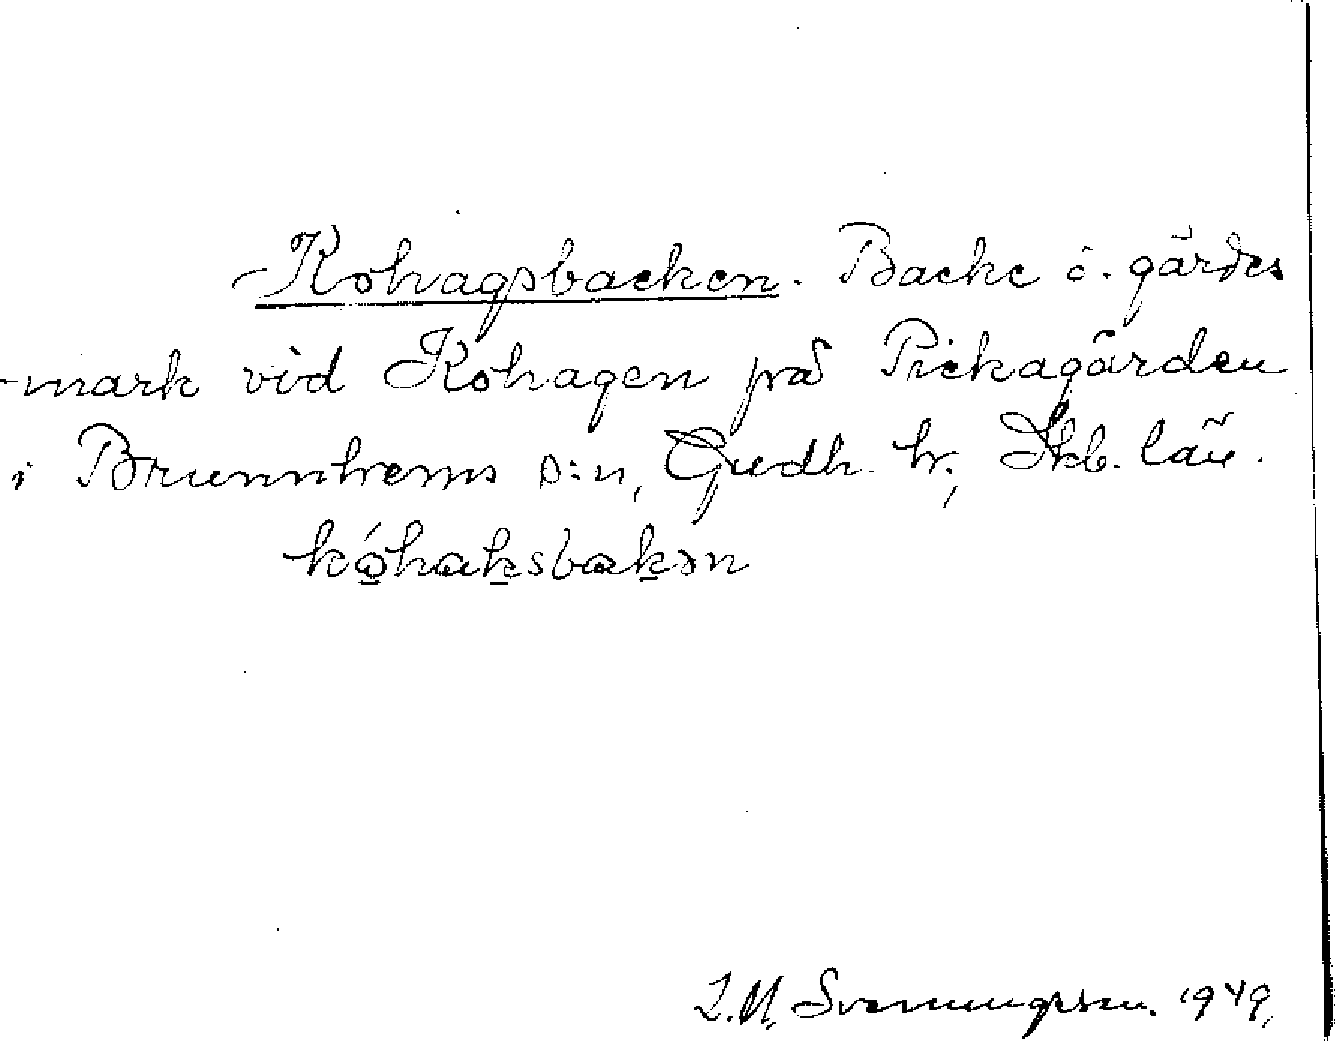 Kohagsbacken. Backe o. gärdes
-mark vid Kohagen på Pickagården
i Brunnhems s:n, Gudh. hr., Skb. län.
kóhaksbakən
L.M. Svenungsson. 1949.